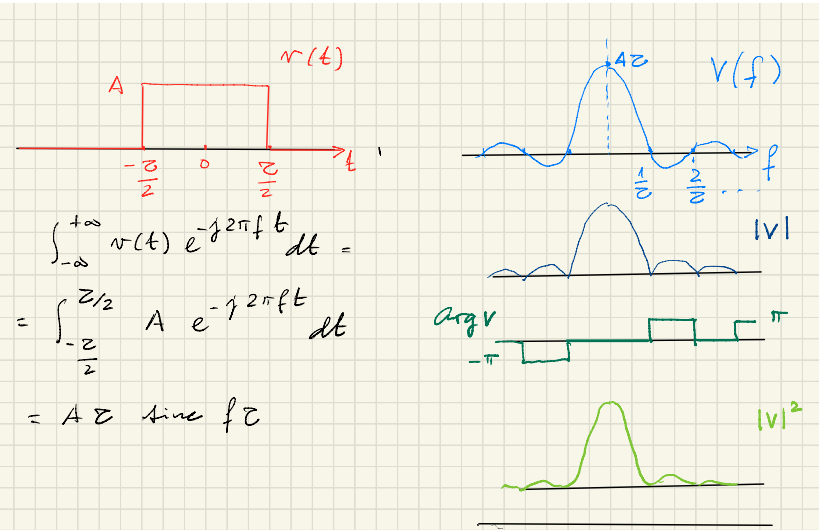 v(t)
A
-τ/2 0 τ/2 t
∫_{-∞}^{+∞} v(t) e^{-j2πft} dt =
= ∫_{-τ/2}^{τ/2} A e^{-j2πft} dt
= Aτ sinc fτ
Aτ
V(f)
f
1/τ 2/τ ....
|V|
arg V
π
-π
|V|²